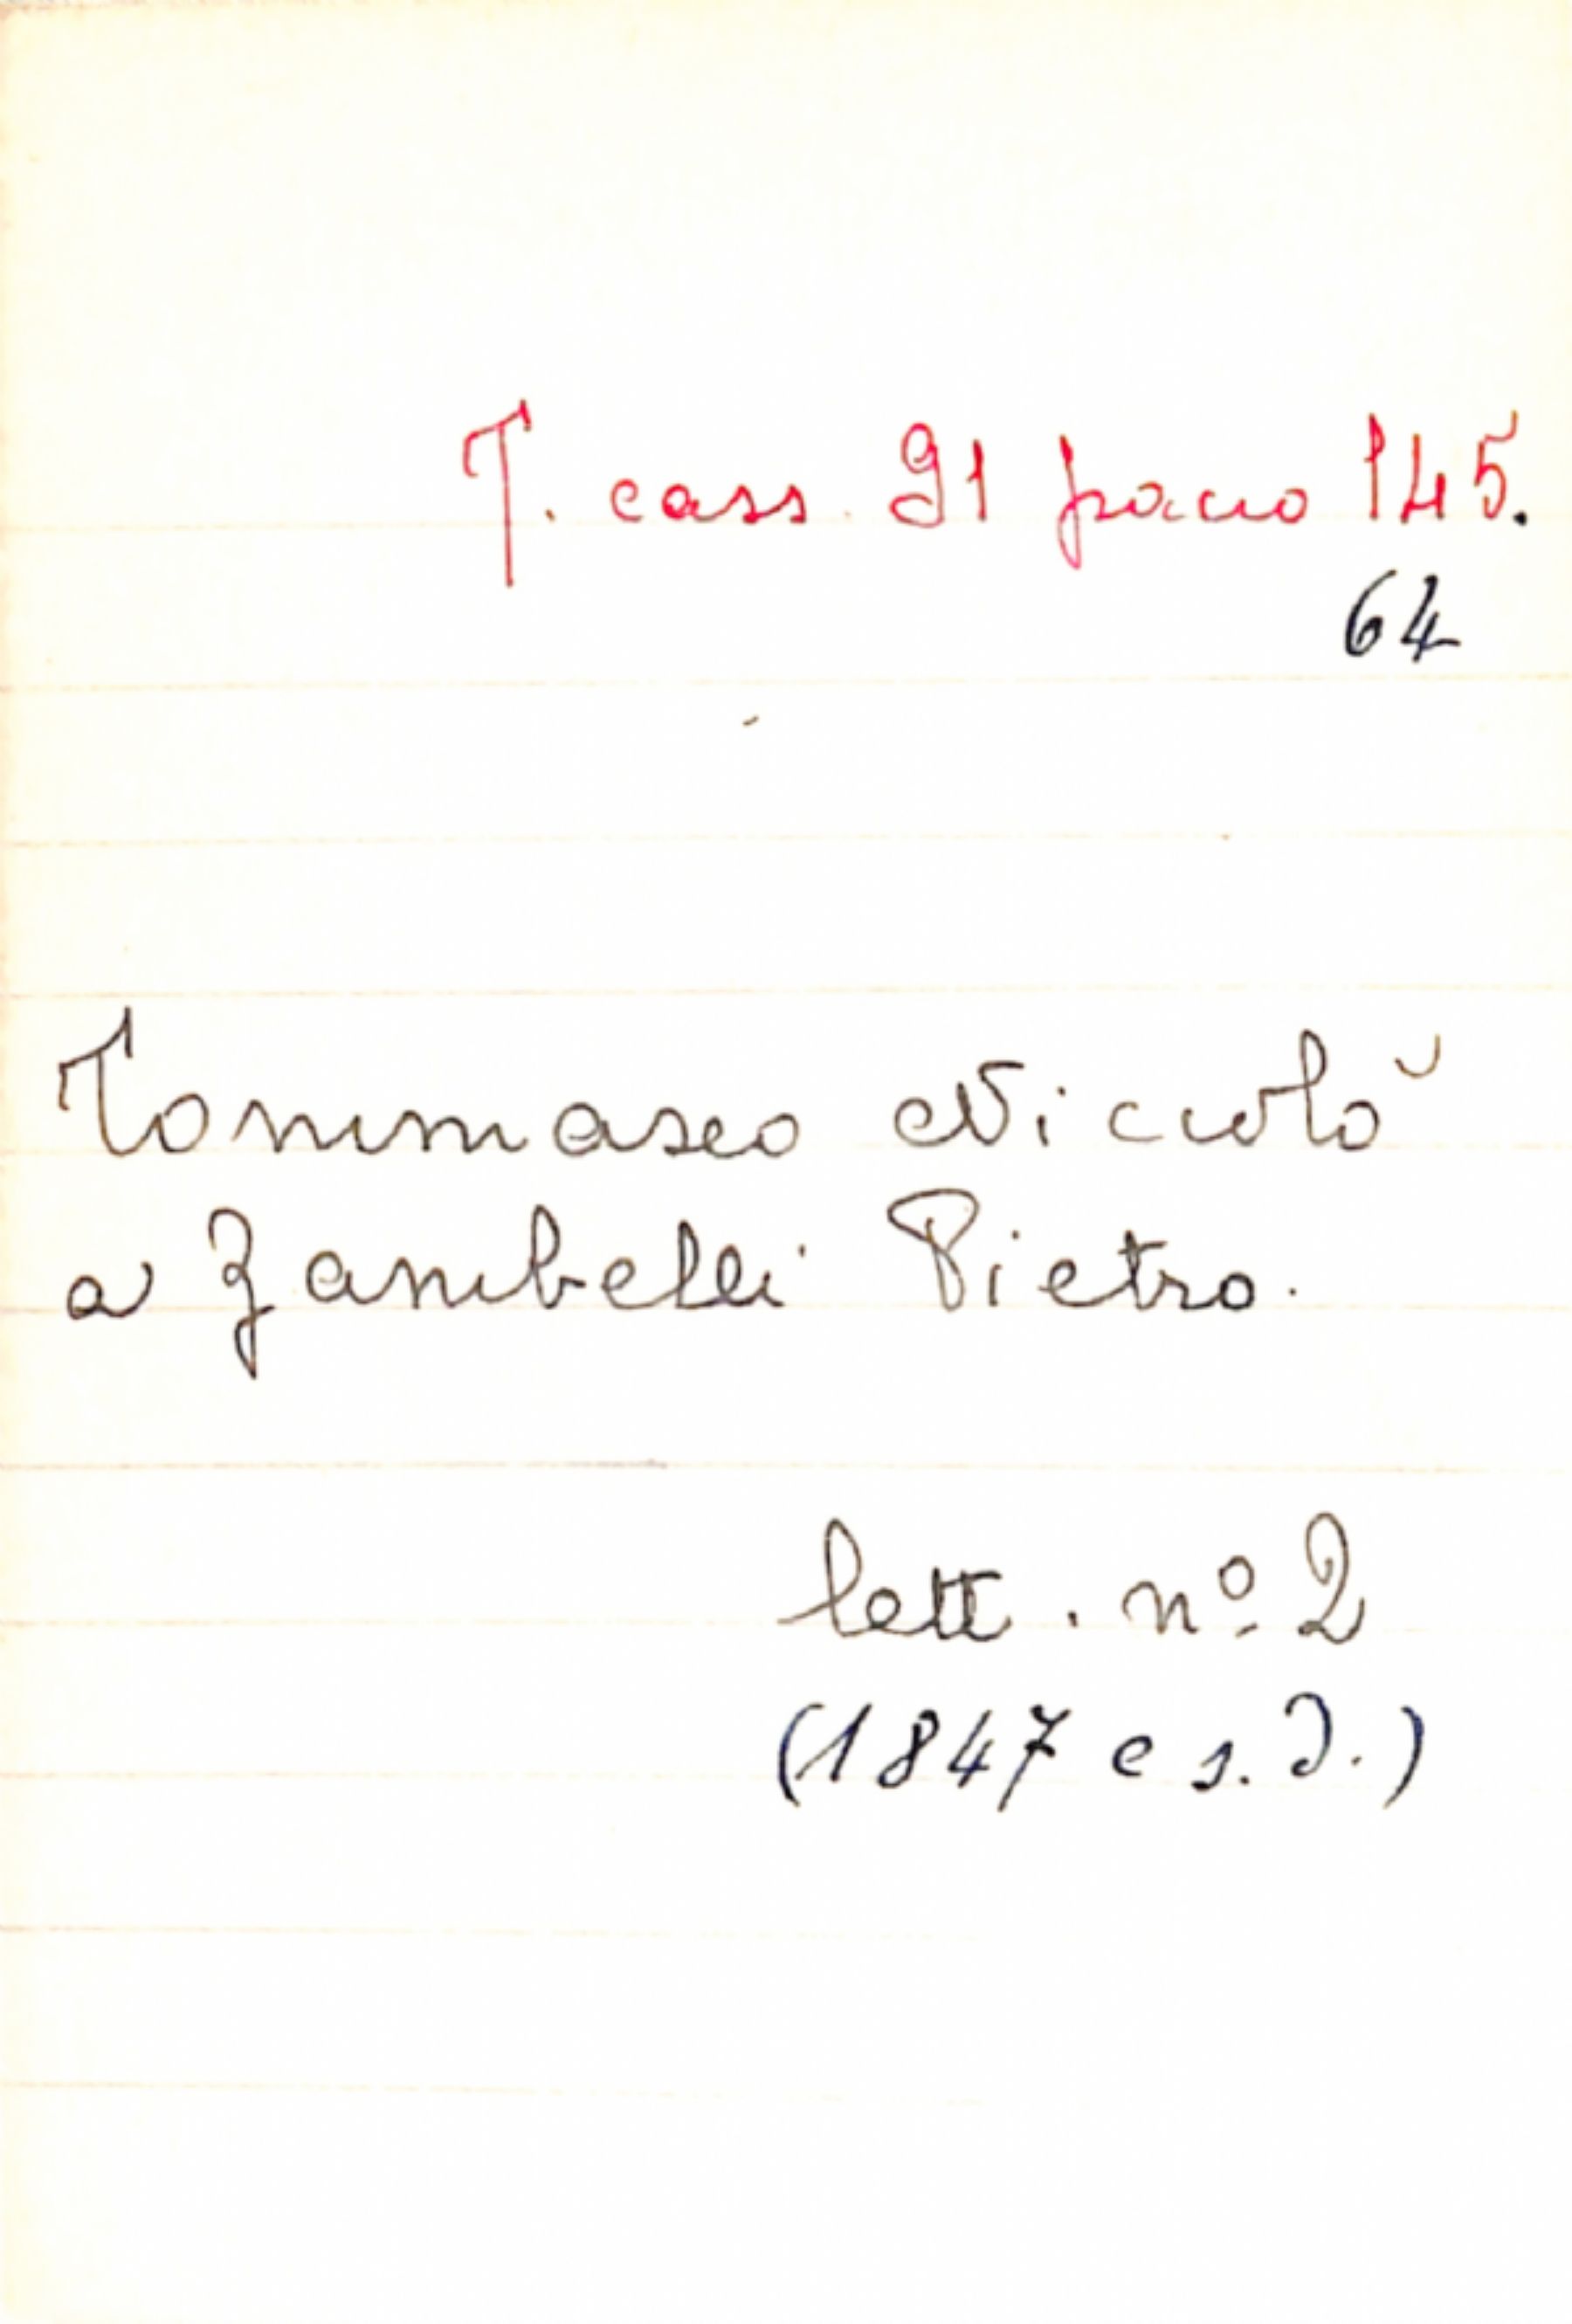 T. cass. 91 pacco 145.
64
Tommaseo Niccolò
a Zambelli Pietro.
lett. nº 2
(1847 e s.d.)